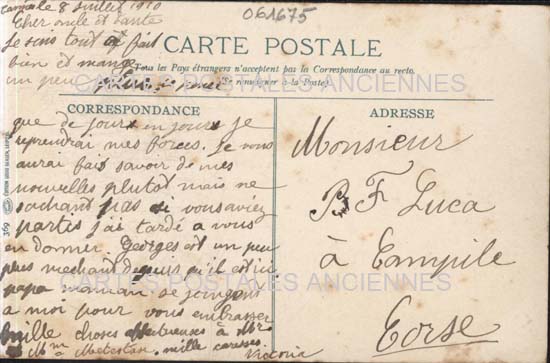 061675
le 8 Juillet 1910
Cher oncle et tante
Je suis tout a fait
bien et mange
un peu plus
CARTE POSTALE
Tous les Pays étrangers n'acceptent pas la Correspondance au recto.
(Se renseigner à la Poste)
CARTES POSTALES ANCIENNES
CORRESPONDANCE
que de jours en jours je
reprendrai mes forces. Je vous
aurai fait savoir de mes
nouvelles plutot mais ne
sachant pas si vous aviez
partis j'ai tardé a vous
en donner. Georges est un peu
plus mechant depuis qu'il est ici
papa maman se joingent
a moi pour vous embrasser
mille choses affectueuses à Mr
Mme mille caresses.
Victoria
ADRESSE
Monsieur
F. Luca
à
Corse
CARTES POSTALES ANCIENNES
369